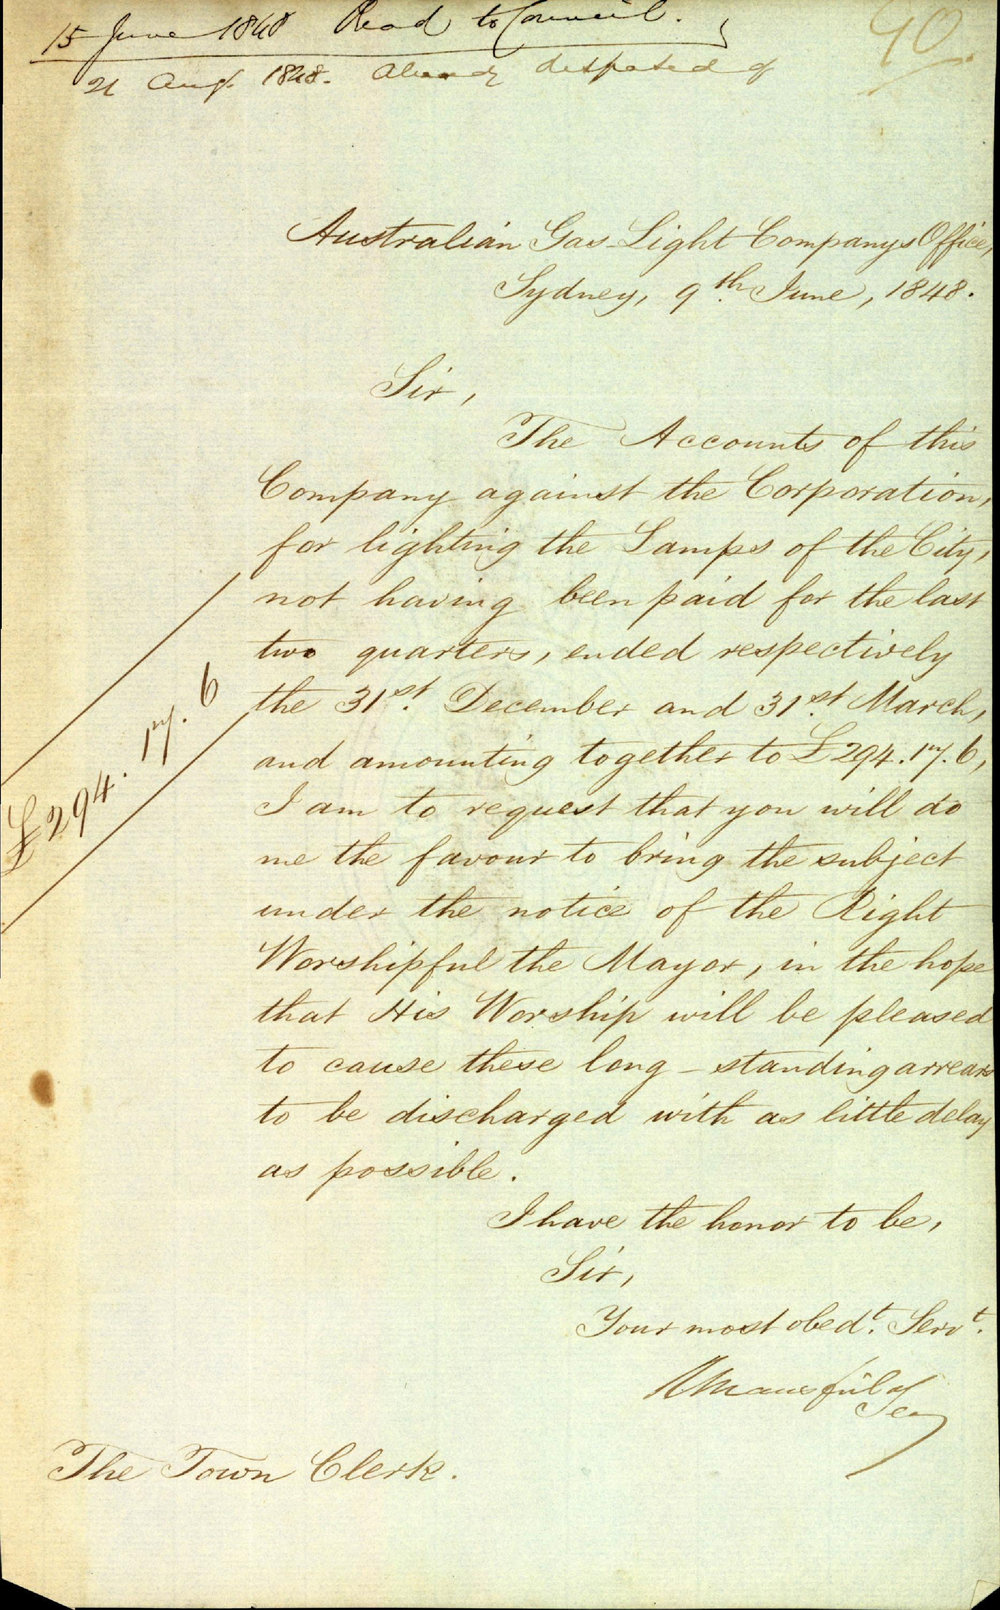 15 June 1848 Read to Council.
90.
21 Augt. 1848. Already disposed of
Australian Gas Light Companys Office,
Sydney, 9th. June, 1848.
Sir,
The Accounts of this
Company against the Corporation,
for lighting the Lamps of the City,
not having been paid for the last
two quarters, ended respectively
the 31st. December and 31st. March,
and amounting together to £294.17.6,
£294.17.6
I am to request that you will do
me the favour to bring the subject
under the notice of the Right
Worshipful the Mayor, in the hope
that His Worship will be pleased
to cause these long-standing arrears
to be discharged with as little delay
as possible.
I have the honor to be,
Sir,
Your most obedt. Servt.
R Mansfield
Sec
The Town Clerk.